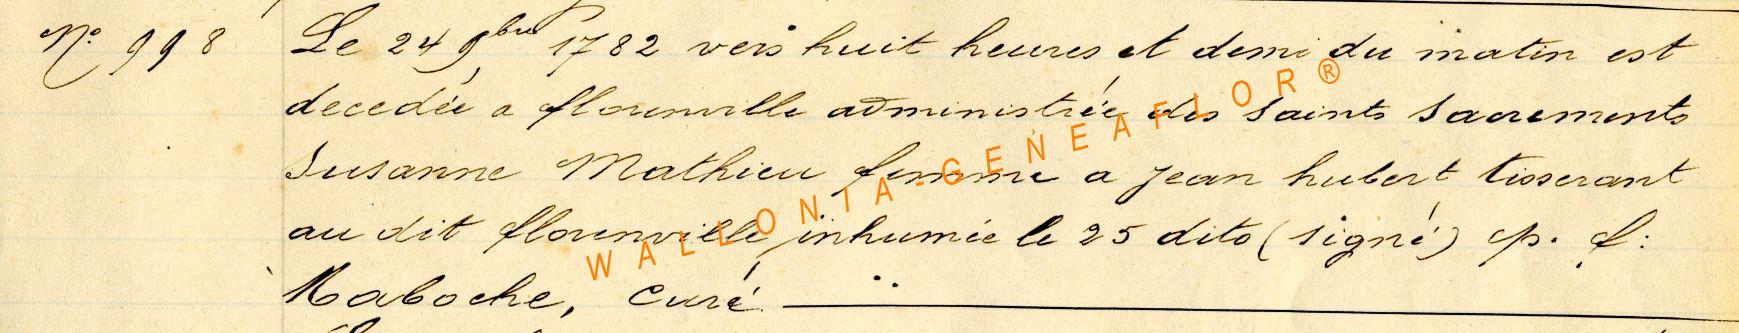 N° 998 Le 24 9bre 1782 vers huit heures et demi du matin est
decedée a florenville administrée des saints Sacrements
Susanne Mathieu femme a jean hubert tisserant
au dit florenville, inhumée le 25 dito (signé) p. f:
Maboche, curé
WALLONIA-GENEAFLOR®